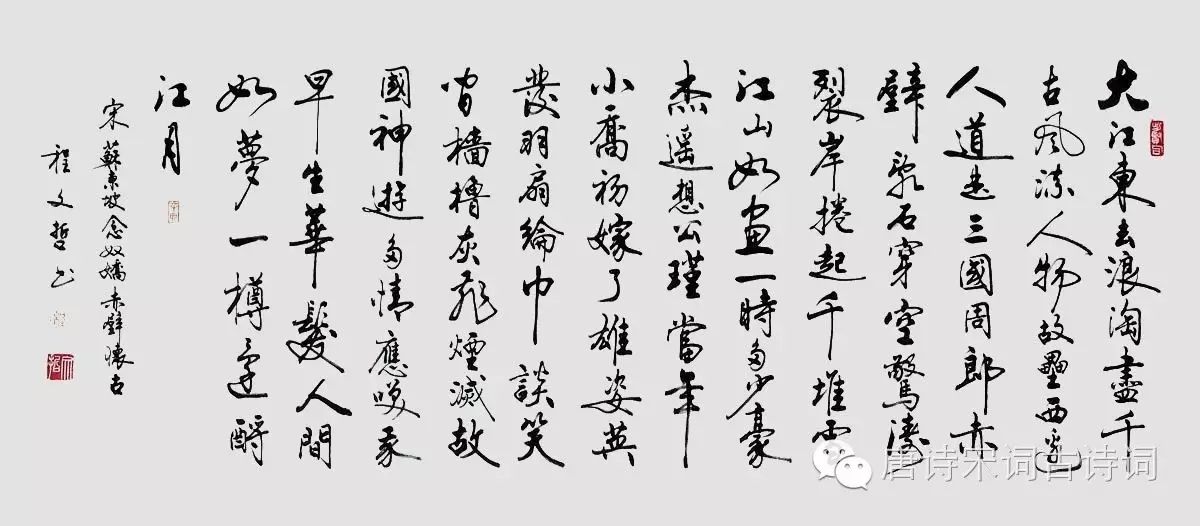 大江東去浪淘盡千
古風流人物故壘西邊
人道是三國周郎赤
壁亂石穿空驚濤
裂岸捲起千堆雪
江山如畫一時多少豪
杰遥想公瑾當年
小喬初嫁了雄姿英
發羽扇綸巾談笑
間檣櫓灰飛煙滅故
國神遊多情應笑我
早生華髮人間
如夢一樽還酹
江月
宋蘇東坡念奴嬌赤壁懷古
程文哲书
唐诗宋词古诗词